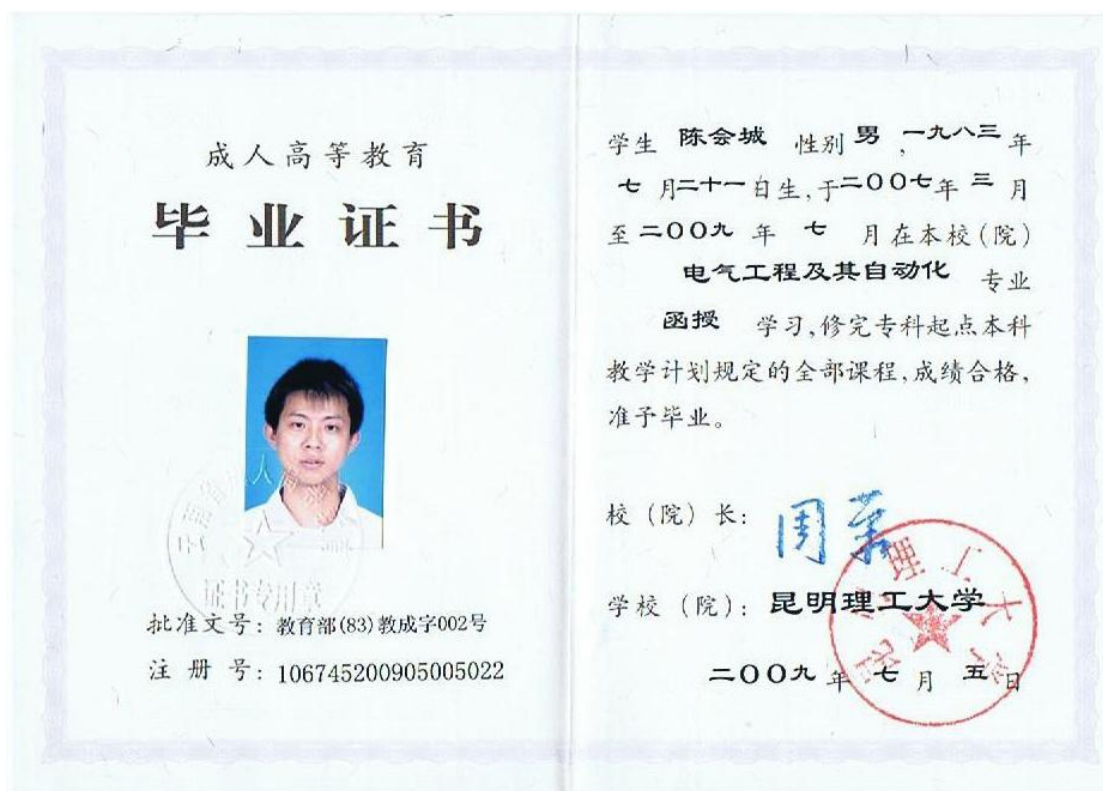 成人高等教育
毕业证书
证书专用章
批准文号：教育部(83)教成字002号
注册号：106745200905005022
学生 陈会城 性别 男，一九八三年
七月二十一日生，于二00七年三月
至二00九年七月在本校（院）
电气工程及其自动化 专业
函授 学习，修完专科起点本科
教学计划规定的全部课程，成绩合格，
准予毕业。
校（院）长：周荣
学校（院）：昆明理工大学
昆明理工大学
二00九年七月五日